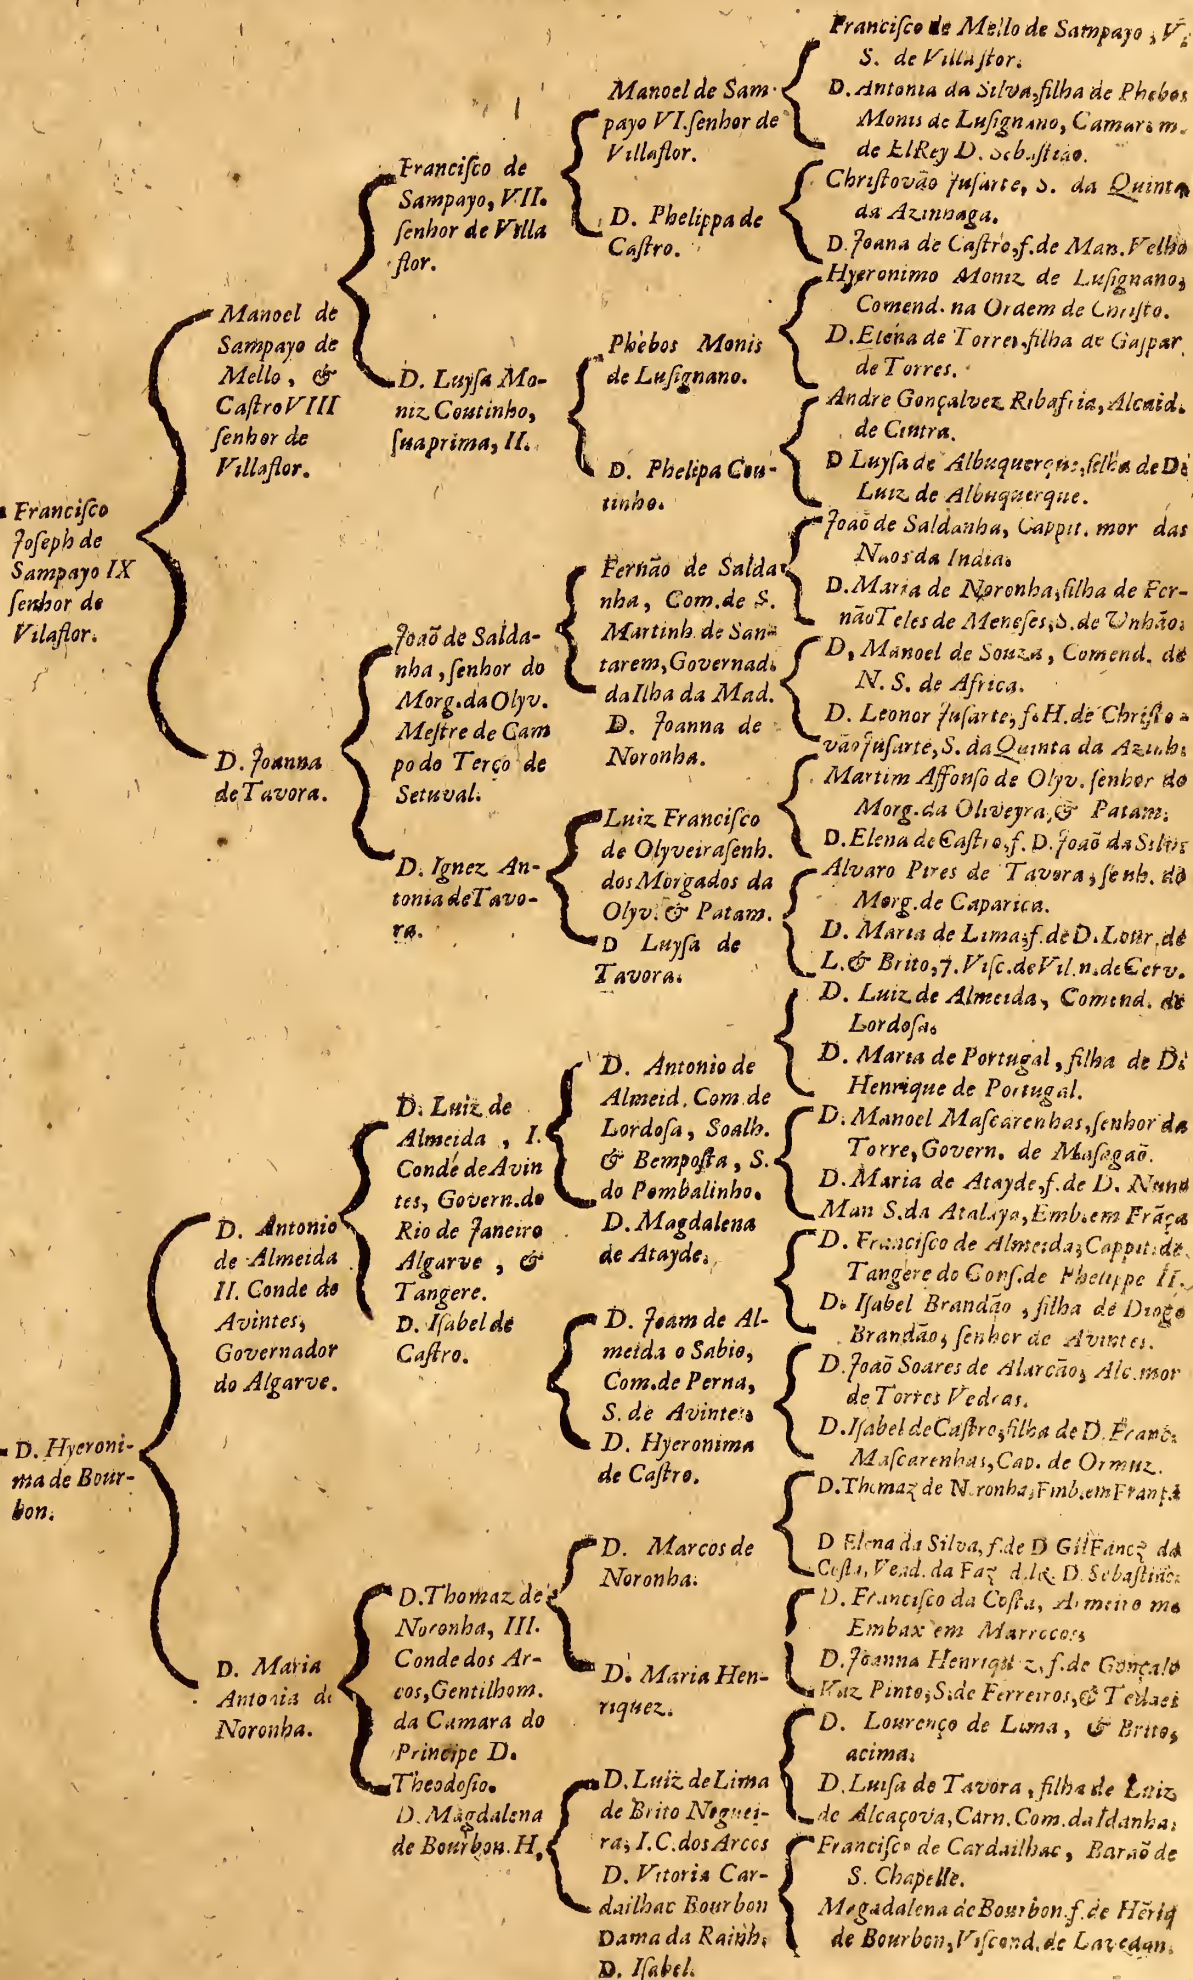 Francisco
Joseph de
Sampayo IX
senhor de
Vilaflor.
D. Hyeroni-
ma de Bour-
bon.
Manoel de
Sampayo de
Mello, &
Castro VIII
senhor de
Villaflor.
D. Joanna
de Tavora.
D. Antonio
de Almeida
II. Conde de
Avintes,
Governador
do Algarve.
D. Maria
Antonia de
Noronha.
Francisco de
Sampayo, VII.
senhor de Villa
flor.
D. Luysa Mo-
niz Coutinho,
sua prima, II.
Joaõ de Salda-
nha, senhor do
Morg. da Olyv.
Mestre de Cam
po do Terço de
Setuval.
D. Ignez An-
tonia de Tavo-
ra.
D. Luiz de
Almeida, I.
Conde de Avin
tes, Govern. do
Rio de Janeiro
Algarve, &
Tangere.
D. Isabel de
Castro.
D. Thomaz de
Noronha, III.
Conde dos Ar-
cos, Gentilhom.
da Camara do
Principe D.
Theodosio.
D. Magdalena
de Bourbon. H.
Manoel de Sam-
payo VI. senhor de
Villaflor.
D. Phelippa de
Castro.
Phebos Monis
de Lusignano.
D. Phelipa Cou-
tinho.
Fernão de Salda
nha, Com. de S.
Martinh. de San-
tarem, Governad.
da Ilha da Mad.
D. Joanna de
Noronha.
Luiz Francisco
de Olyveira senh.
dos Morgados da
Olyv. & Patam.
D Luysa de
Tavora.
D. Antonio de
Almeid. Com. de
Lordosa, Soalh.
& Bemposta, S.
do Pombalinho.
D. Magdalena
de Atayde.
D. Joam de Al-
meida o Sabio,
Com. de Perna,
S. de Avintes
D. Hyeronima
de Castro.
D. Marcos de
Noronha.
D. Maria Hen-
riquez.
D. Luiz de Lima
de Brito Noguei-
ra, I. C. dos Arcos
D. Vitoria Car-
dailhac Bourbon
Dama da Rainh.
D. Isabel.
Francisco de Mello de Sampayo, V.
S. de Villaflor.
D. Antonia da Silva, filha de Phebos
Monis de Lusignano, Camar. m.
de ElRey D. Sebastiao.
Christovão Jusarte, S. da Quinta
da Azinhaga.
D. Joana de Castro, f. de Man. Velho
Hyeronimo Moniz de Lusignano,
Comend. na Ordem de Christo.
D. Elena de Torres, filha de Gaspar
de Torres.
Andre Gonçalvez Ribafria, Alcaid.
de Cintra.
D Luysa de Albuquerque, filha de D.
Luiz de Albuquerque.
Joaõ de Saldanha, Cappit. mor das
Naos da India.
D. Maria de Noronha, filha de Fer-
não Teles de Meneses, S. de Unhão.
D, Manoel de Souza, Comend. de
N. S. de Africa.
D. Leonor Jusarte, f. H. de Christo-
vão Jusarte, S. da Quinta da Azinh.
Martim Affonso de Olyv. senhor do
Morg. da Oliveyra, & Patam.
D. Elena de Castro, f. D. Joaõ da Silva
Alvaro Pires de Tavora, senh. do
Morg. de Caparica.
D. Maria de Lima, f. de D. Lour. de
L. & Brito, 7. Visc. de Vil. n. de Cerv.
D. Luiz de Almeida, Comend. de
Lordosa.
D. Maria de Portugal, filha de D.
Henrique de Portugal.
D. Manoel Mascarenhas, senhor da
Torre, Govern. de Masagaõ.
D. Maria de Atayde, f. de D. Nuno
Man S. da Atalaya, Emb. em Frãça
D. Francisco de Almeida, Cappit. de
Tangere do Cons. de Phelippe II.
D. Isabel Brandão, filha de Diogo
Brandão, senhor de Avintes.
D. João Soares de Alarcão, Alc. mor
de Torres Vedras.
D. Isabel de Castro, filha de D. Franc.
Mascarenhas, Cap. de Ormuz.
D. Thomaz de Noronha, Emb. em Franç.
D Elena da Silva, f. de D Gil Eanez da
Costa, Vead. da Faz. D. Sebastiao.
D. Francisco da Costa, Armeiro mo
Embax em Marrocos,
D. Joanna Henriquez, f. de Gonçalo
Vaz Pinto, S. de Ferreiros, & Tedaes
D. Lourenço de Lima, & Brito,
acima.
D. Luisa de Tavora, filha de Luiz
de Alcaçova, Carn. Com. da Idanha.
Francisco de Cardailhac, Barão de
S. Chapelle.
Magadalena de Bourbon. f. de Hẽriq
de Bourbon, Viscond. de Lavedan.